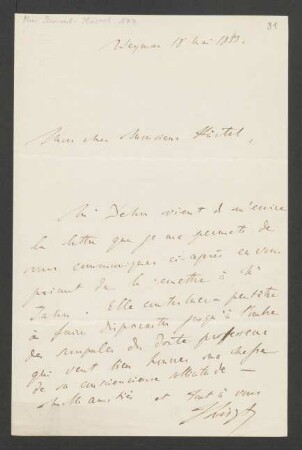 81
Weymar 18 Mai 1853.
Mon cher Monsieur Härtel,
Mr Dehn vient de m'écrire
la lettre que je me permets de
vous communiquer ci-après en vous
priant de la remettre à Mr
Jahn. Elle contribuera peut être
à faire disparaître jusqu'à l'ombre
des scrupules du docte professeur
qui veut bien honorer ma
de sa consciencieuse attitude —
Mille amitiés et tout à vous
F Liszt